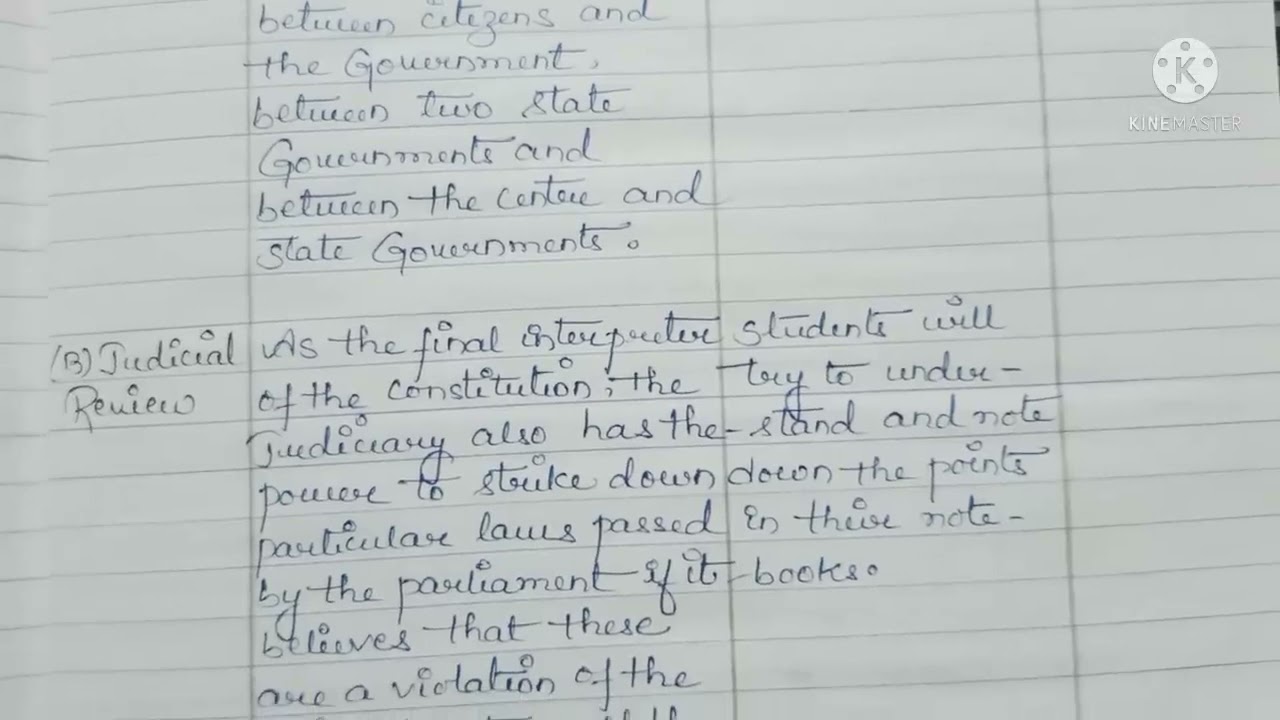 between citizens and
the Government,
between two state
Governments and
between the centre and
state Governments.
KINEMASTER
(B) Judicial
Review
As the final interpreter
of the constitution, the
Judiciary also has the
power to strike down
particular laws passed
by the parliament if it
believes that these
are a violation of the
students will
try to under-
stand and note
down the points
in their note-
books.